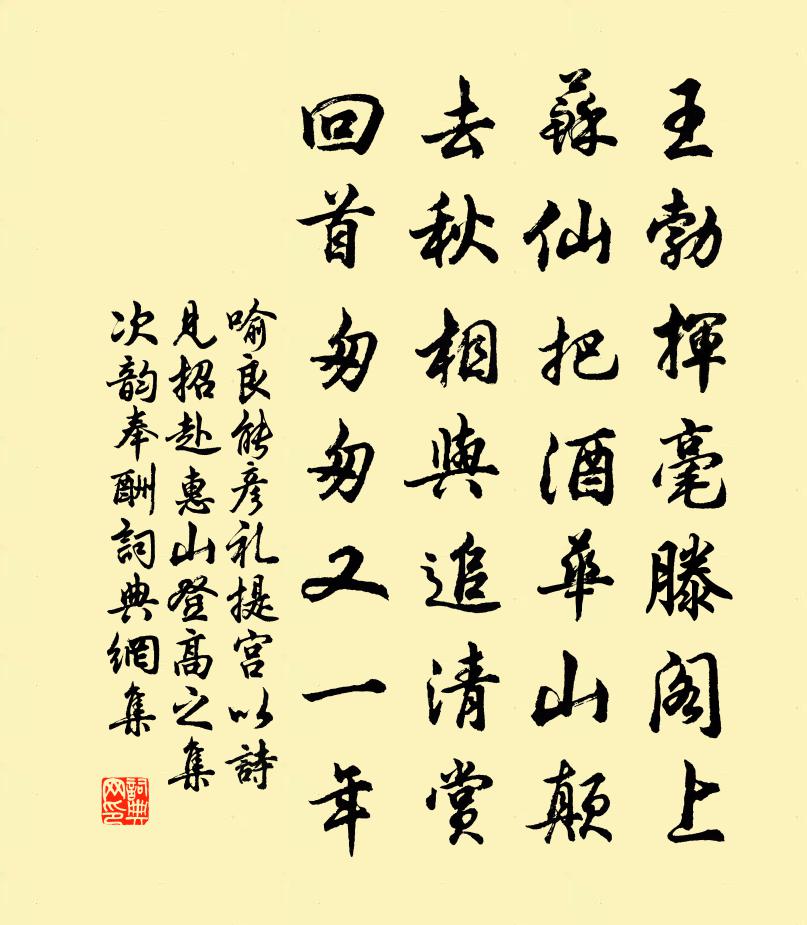 王勃揮毫滕阁上
蘇仙把酒華山顛
去秋相與追清赏
回首匆匆又一年
喻良能彦礼提宫以詩
見招赴惠山登高之集
次韵奉酬詞典網集
詞典
网印